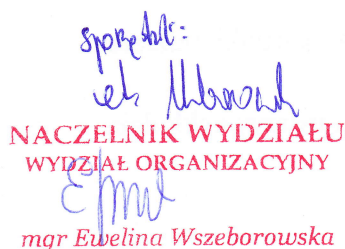 sporządził:
NACZELNIK WYDZIAŁU
WYDZIAŁ ORGANIZACYJNY
mgr Ewelina Wszeborowska